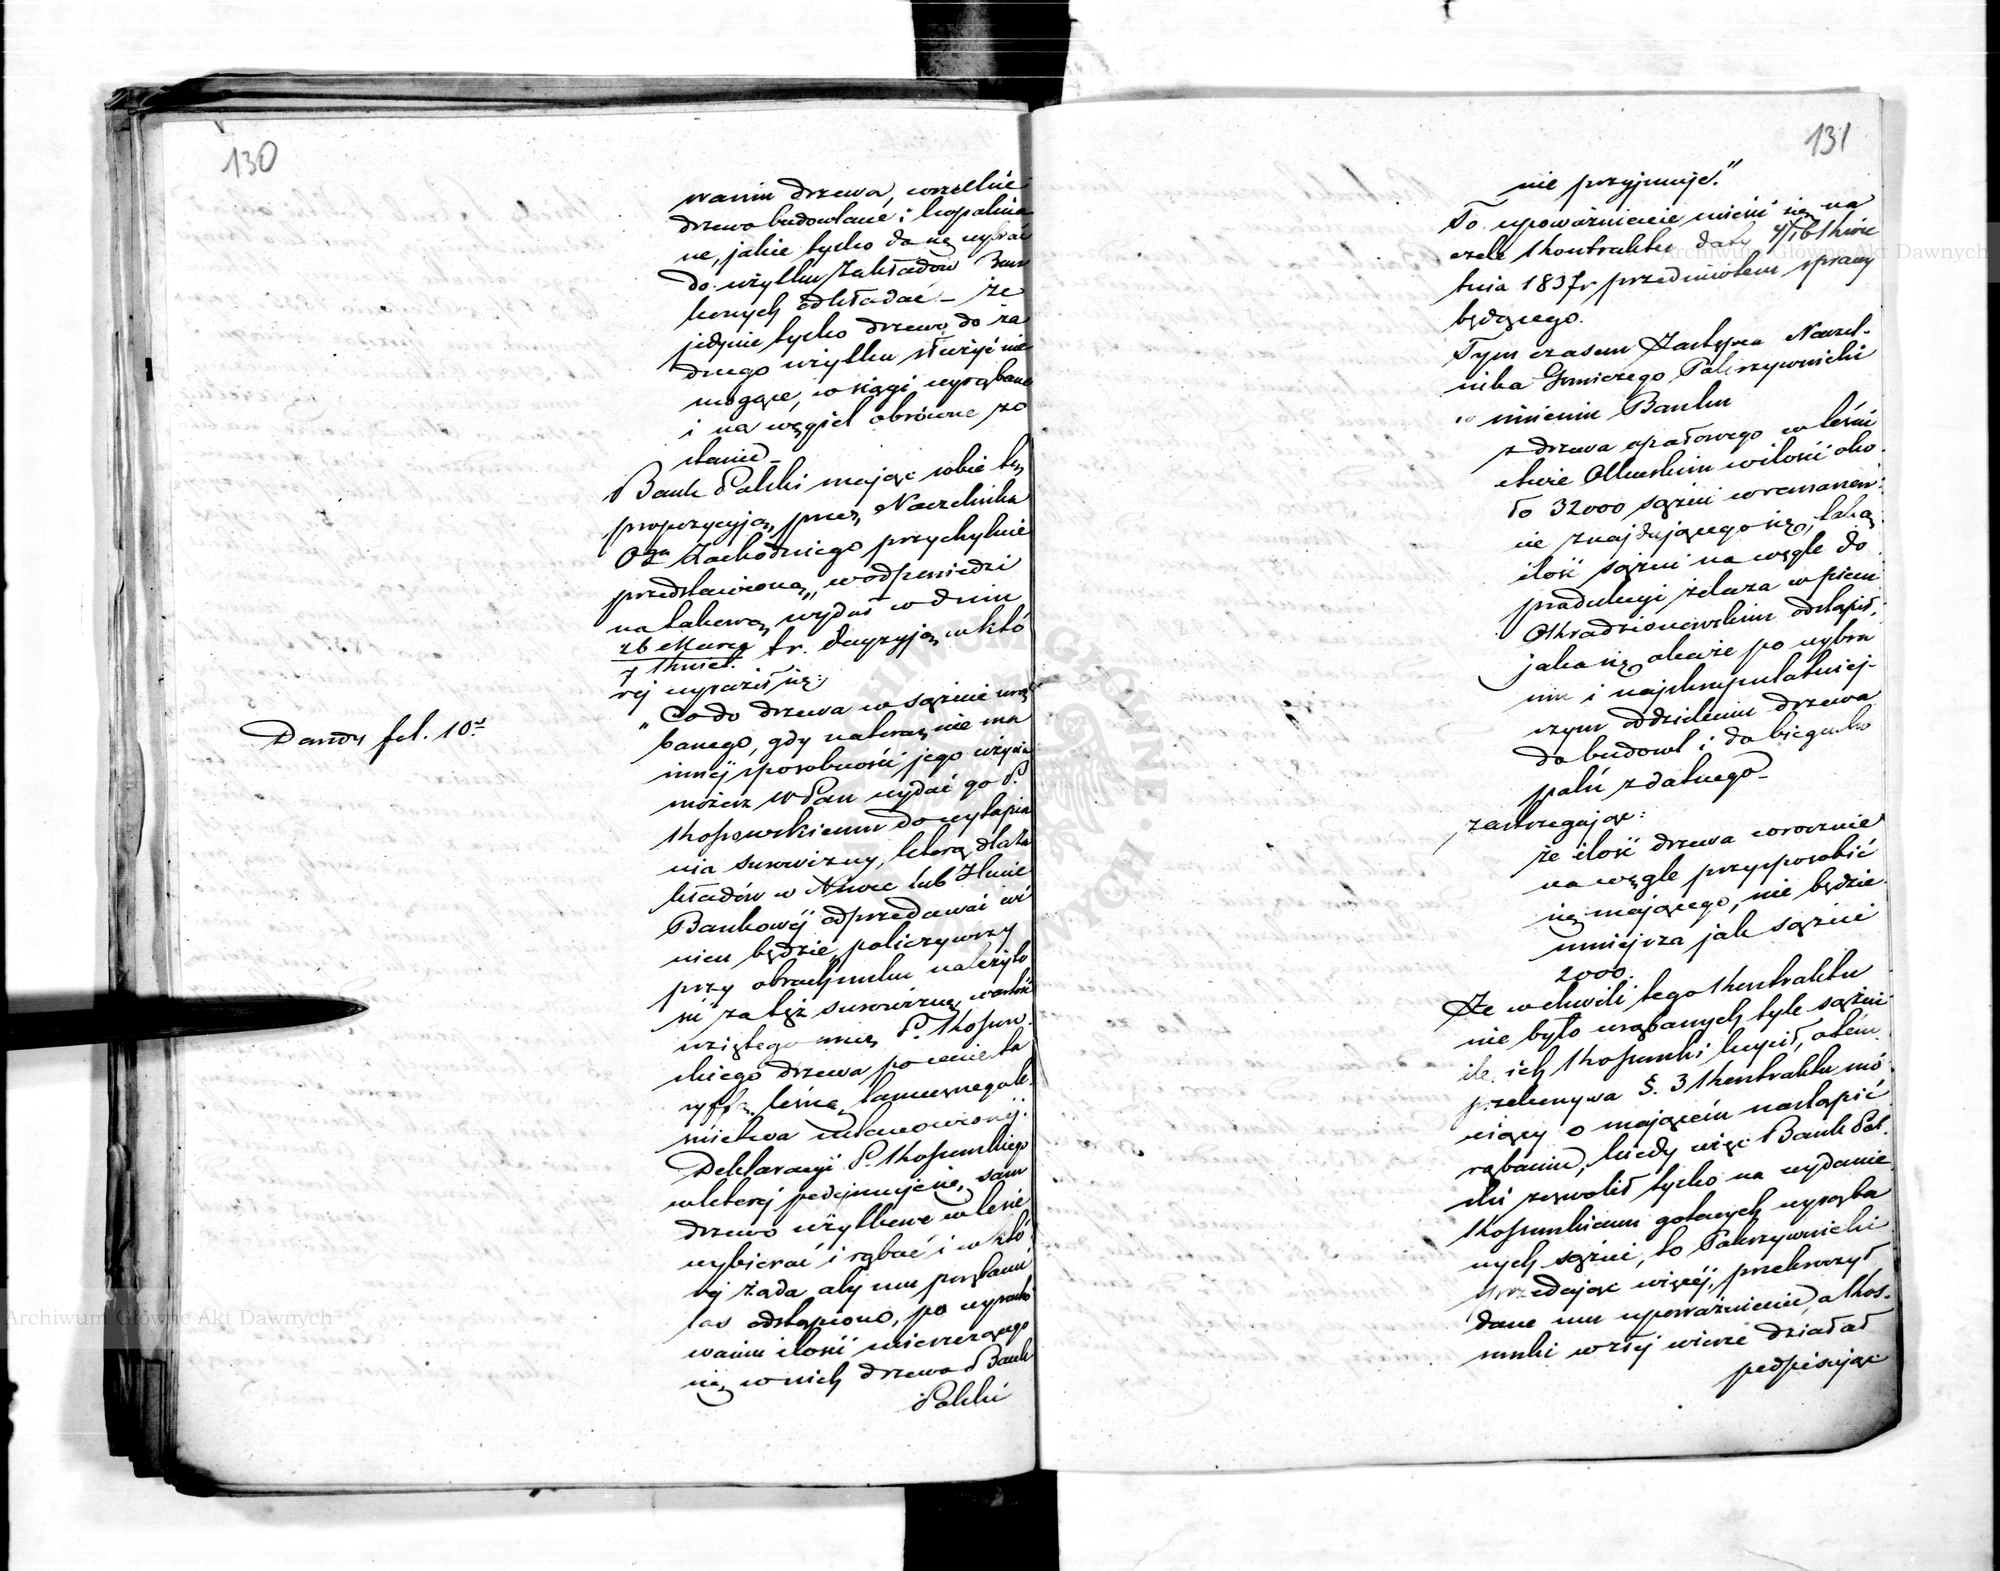 130
waniu drzewa, wszelkie
drzewo budowlane i kopalnia
ne, jakie tylko da się wybrać
do użytku Zakładów Ban
kowych odkładać – że
jedynie tylko drzewo do ża
dnego użytku służyć nie
mogące, w sągi wyrąbane
i na węgiel obrócone zo
stanie –
Bank Polski mając sobie tę
propozycyją przez Naczelnika
Oga Zachodniego przychylnie
przedstawioną, w odpowiedzi
na takową wydał w dniu
26 Marca
7 Kwiet. t.r. decyzyją w któ
rej wyraził się:
„Co do drzewa w sążnie wrą
banego, gdy na teraz nie ma
innej sposobności jego użycia
możesz WPan wydać go P.
Kossowskiemu do wytapia
nia surowizny, którą dla Za
kładów w Niwce lub Hucie
Bankowej odprzedawać wi
nien będzie, policzywszy
przy obrachunku należyto
ści za tęż surowiznę wartość
wziętego przez P. Kossow
skiego drzewa po cenie ta
ryffą leśną tamecznego le
śnictwa ustanowionej.
Deklaracyi P. Kossowskiego
w której podejmuje się, sam
drzewo użytkowe w lesie
wybierać i rąbać i w któ
rej żąda, aby mu porębami
las odstąpiono, po wyracho
waniu ilości mieszczącego
się w nich drzewa Bank
Polski
Dowód fol. 10.
131
nie przyjmuje."
To upoważnienie mieści się na
czele Kontraktu daty 4/16 Kwie
tnia 1837r przedmiotem sprawy
będącego.
Tym czasem Zastępca Naczel-
nika Górniczego Pokrzywnicki
w imieniu Banku
z drzewa opałowego w leśni
ctwie Olkuskim w ilości oko
ło 32000 sążni w remanen
cie znajdującego się, taką
ilość sążni na węgle do
produkcyi żelaza w piecu
Ostradzionowskim odstąpił,
jaka się okaże po wybra
niu i najskrupulatniej-
szym oddzieleniu drzewa
do budowl i do biegu ko
palń zdatnego –
zastrzegając:
że ilość drzewa corocznie
na węgle przysposobić
się mającego, nie będzie
mniejsza jak sążni
2000.
Że w chwili tego Kontraktu
nie było urąbanych tyle sążni
ile ich Kossowski kupił, o tém
przekonywa §. 3 Kontraktu mó
wiący o mającém nastąpić
rąbaniu, kiedy więc Bank Pol
ski zezwolił tylko na wydanie
Kossowskiemu gotowych wyrąba
nych sążni, to Pokrzywnicki
sprzedając więcej, przekroczył
dane mu upoważnienie, a Kos-
sowski w złej wierze działał
podpisując